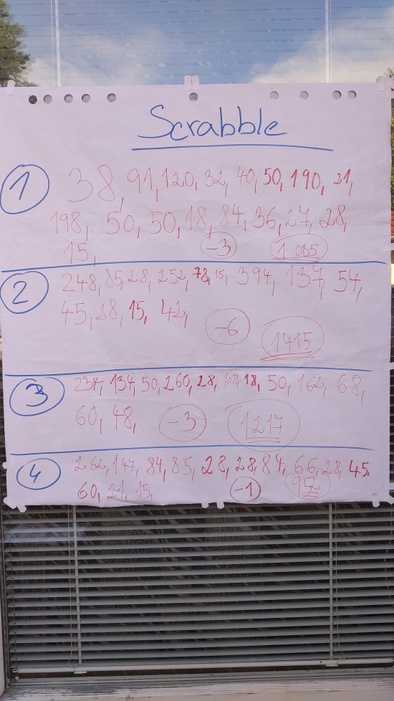 Scrabble
1 38, 91, 120, 32, 40, 50, 190, 21,
198, 50, 50, 18, 84, 36, 27, 28,
15, -3 1 085
2 248, 85, 28, 252, 78, 15, 394, 137, 54,
45, 28, 15, 42,
-6 1415
3 234, 134, 50, 260, 28, 18, 50, 162, 68,
60, 48, -3 1217
4 262, 147, 84, 85, 28, 28, 84, 66, 28, 45,
60, 21, 15, -1